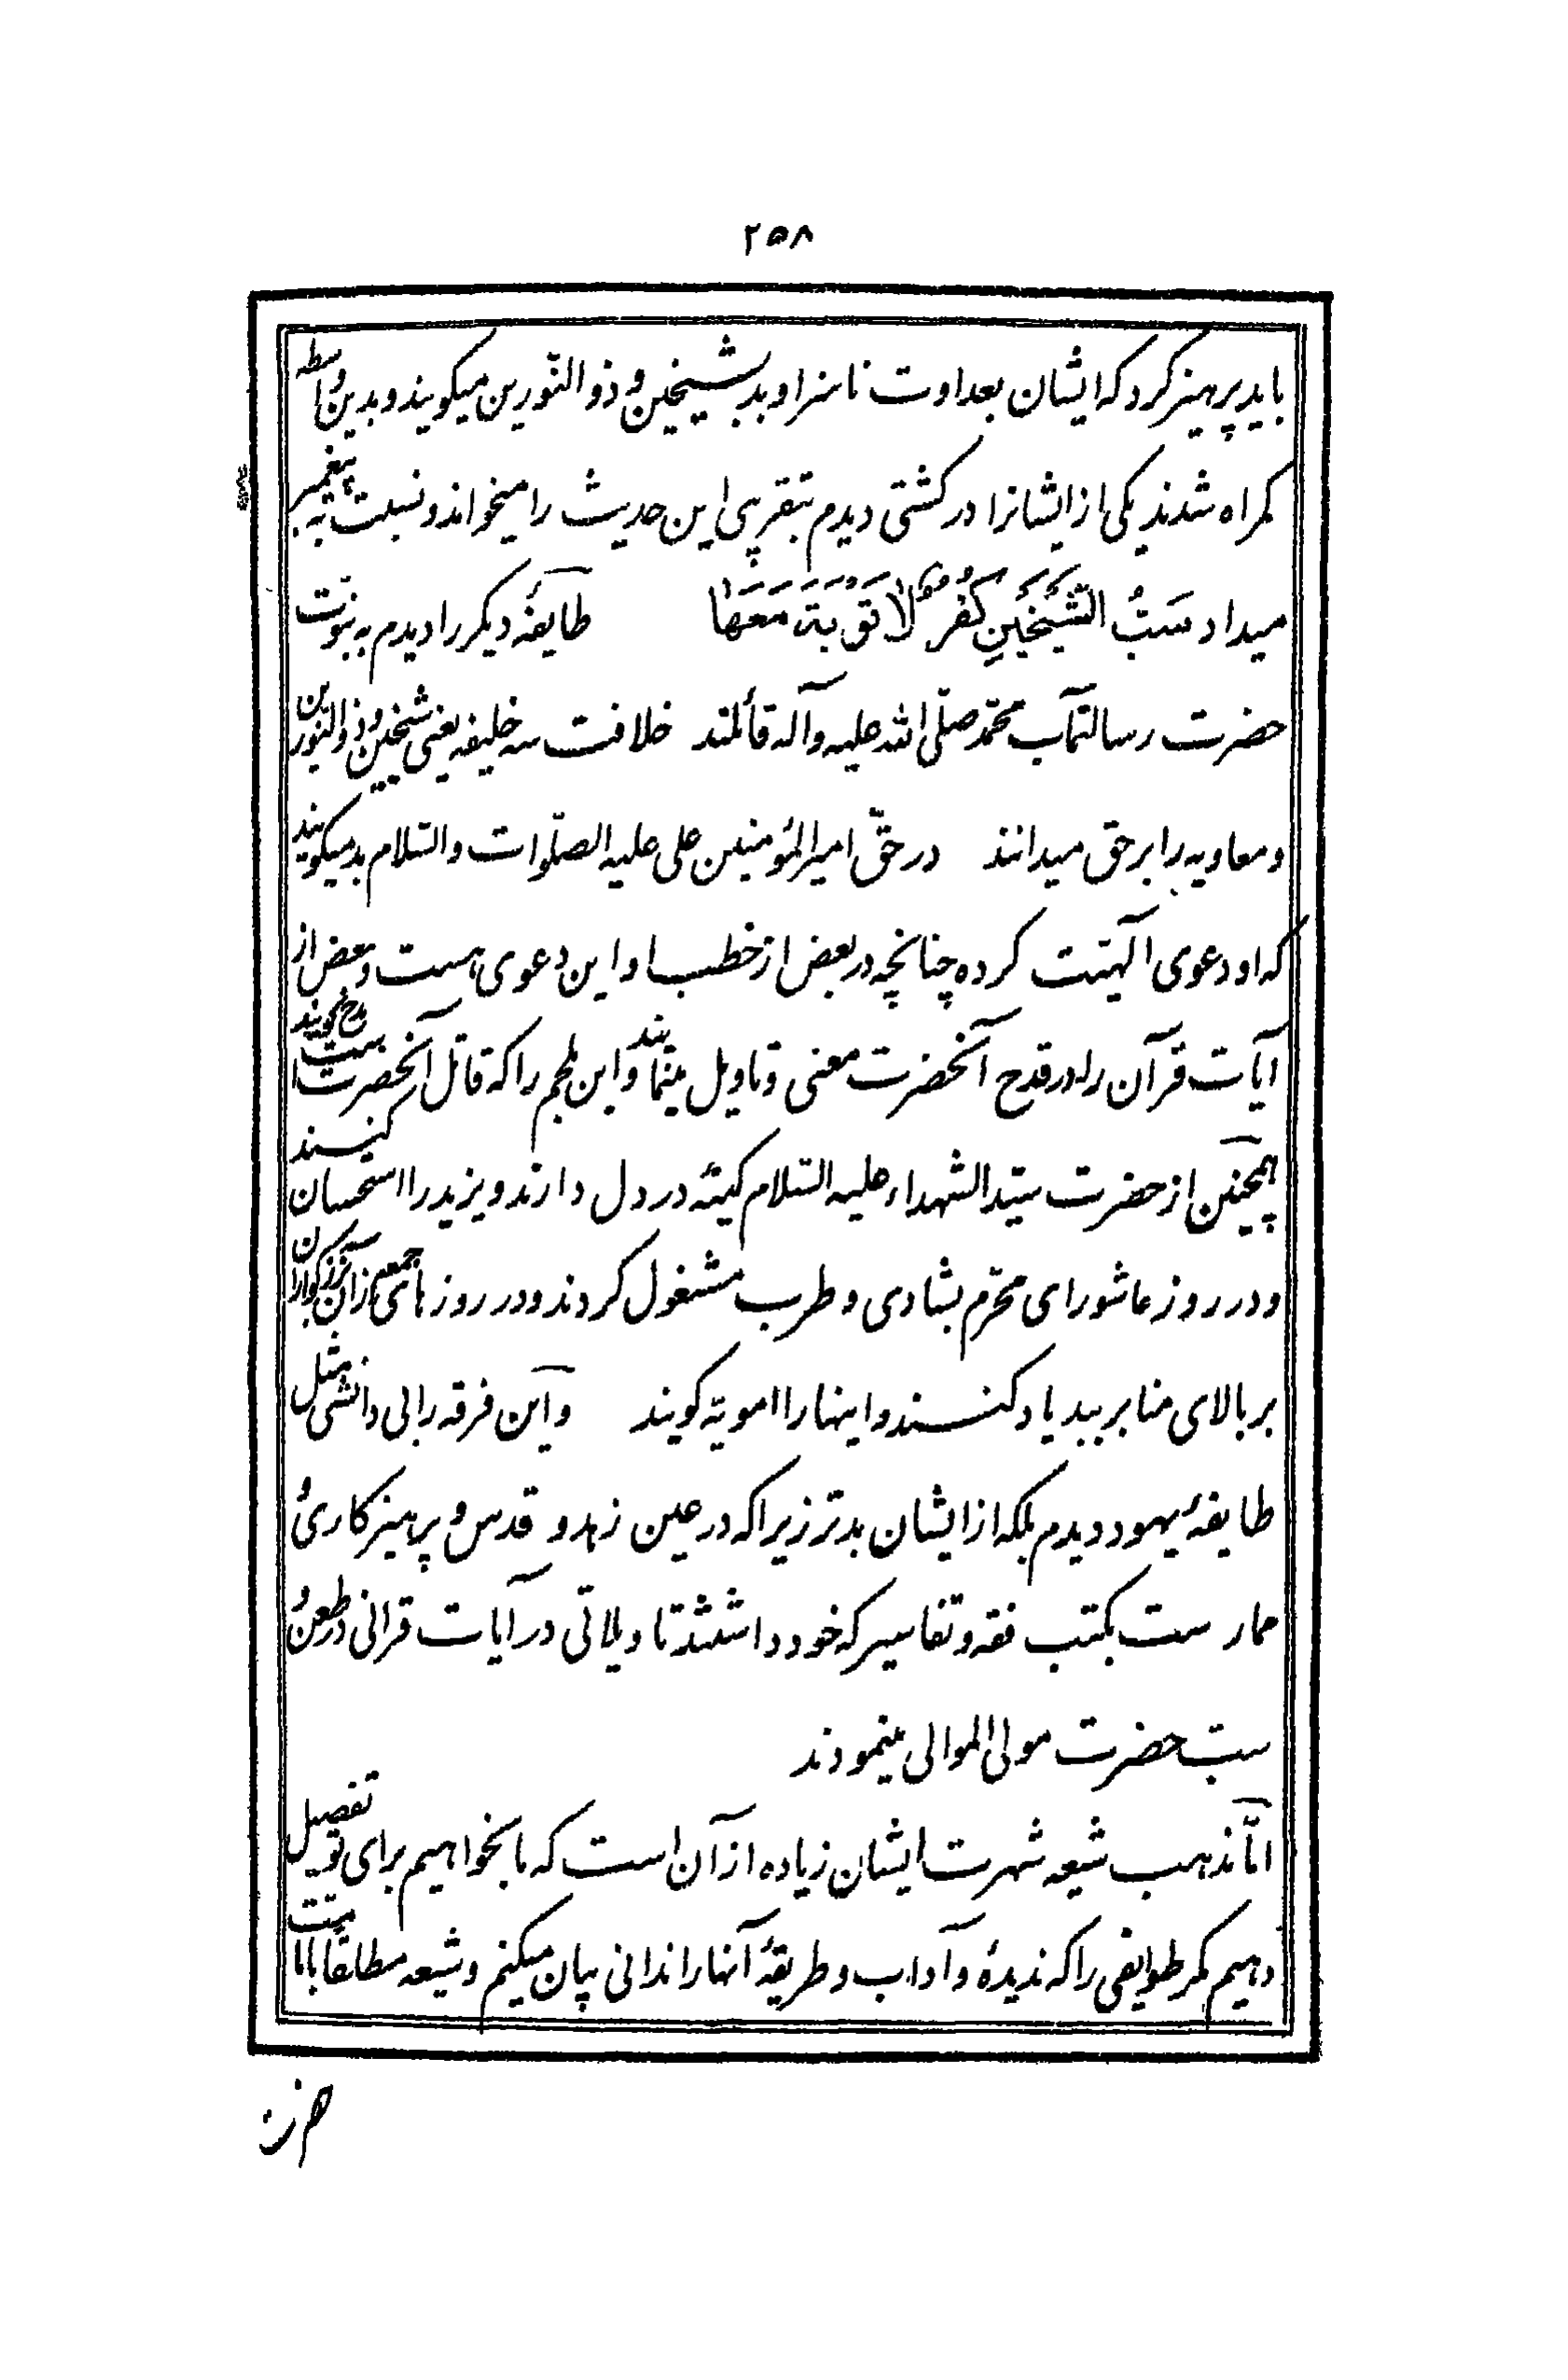 ۲۵۸
باید پرهیز کرد که ایشان بعداوت ناسزا و بد بشیخین و ذو النّورین میکویند و بدین واسطه
کمراه شدند یکی از ایشانرا در کشتی دیدم بتقریبی این حدیث را میخواند و نسبت به پیغمبر
میداد سَبُّ الشَّیْخَیْنِ کُفْرٌ لَا تَوْبَةَ مَعَهَا طایفهٔ دیکر را دیدم به نبوّت
حضرت رسالتمآب محمّد صلّی الله علیه و آله قائلند خلافت سه خلیفه یعنی شیخین و ذو النّورین
و معاویه را بر حق میدانند در حقّ امیر المؤمنین علی علیه الصلّوات و السّلام بد میکویند
که او دعوی الهیّت کرده چنانچه در بعض از خطب او این دعوی هست و بعض از
آیات قرآن را در قدح آنحضرت معنی و تاویل مینمایند و ابن ملجم را که قاتل آنحضرت است مدح کویند
همچنین از حضرت سیّد الشهداء علیه السّلام کینهٔ در دل دارند و یزید را استحسان کنند
و در روز عاشورای محرّم بشادی و طرب مشغول کردند و در روز های جمعه از آن بزرکواران
بر بالای منابر ببد یاد کنند و اینها را امویّه کویند و این فرقه را بی دانشی مثل
طایفهٔ یهود دیدم بلکه از ایشان بدتر زیرا که در عین زهد و قدس و پرهیز کاری و
ممارست بکتب فقه و تفاسیر که خود داشتند تاویلاتی در آیات قرانی در طعن و
سبّ حضرت مولی الموالی مینمودند
امّا مذهب شیعه شهرت ایشان زیاده از آن است که ما بخواهیم برای تو تفصیل
دهیم مکر طوایفی را که ندیدهٔ و آداب و طریقهٔ آنها را ندانی بیان میکنم و شیعه مطلقا با